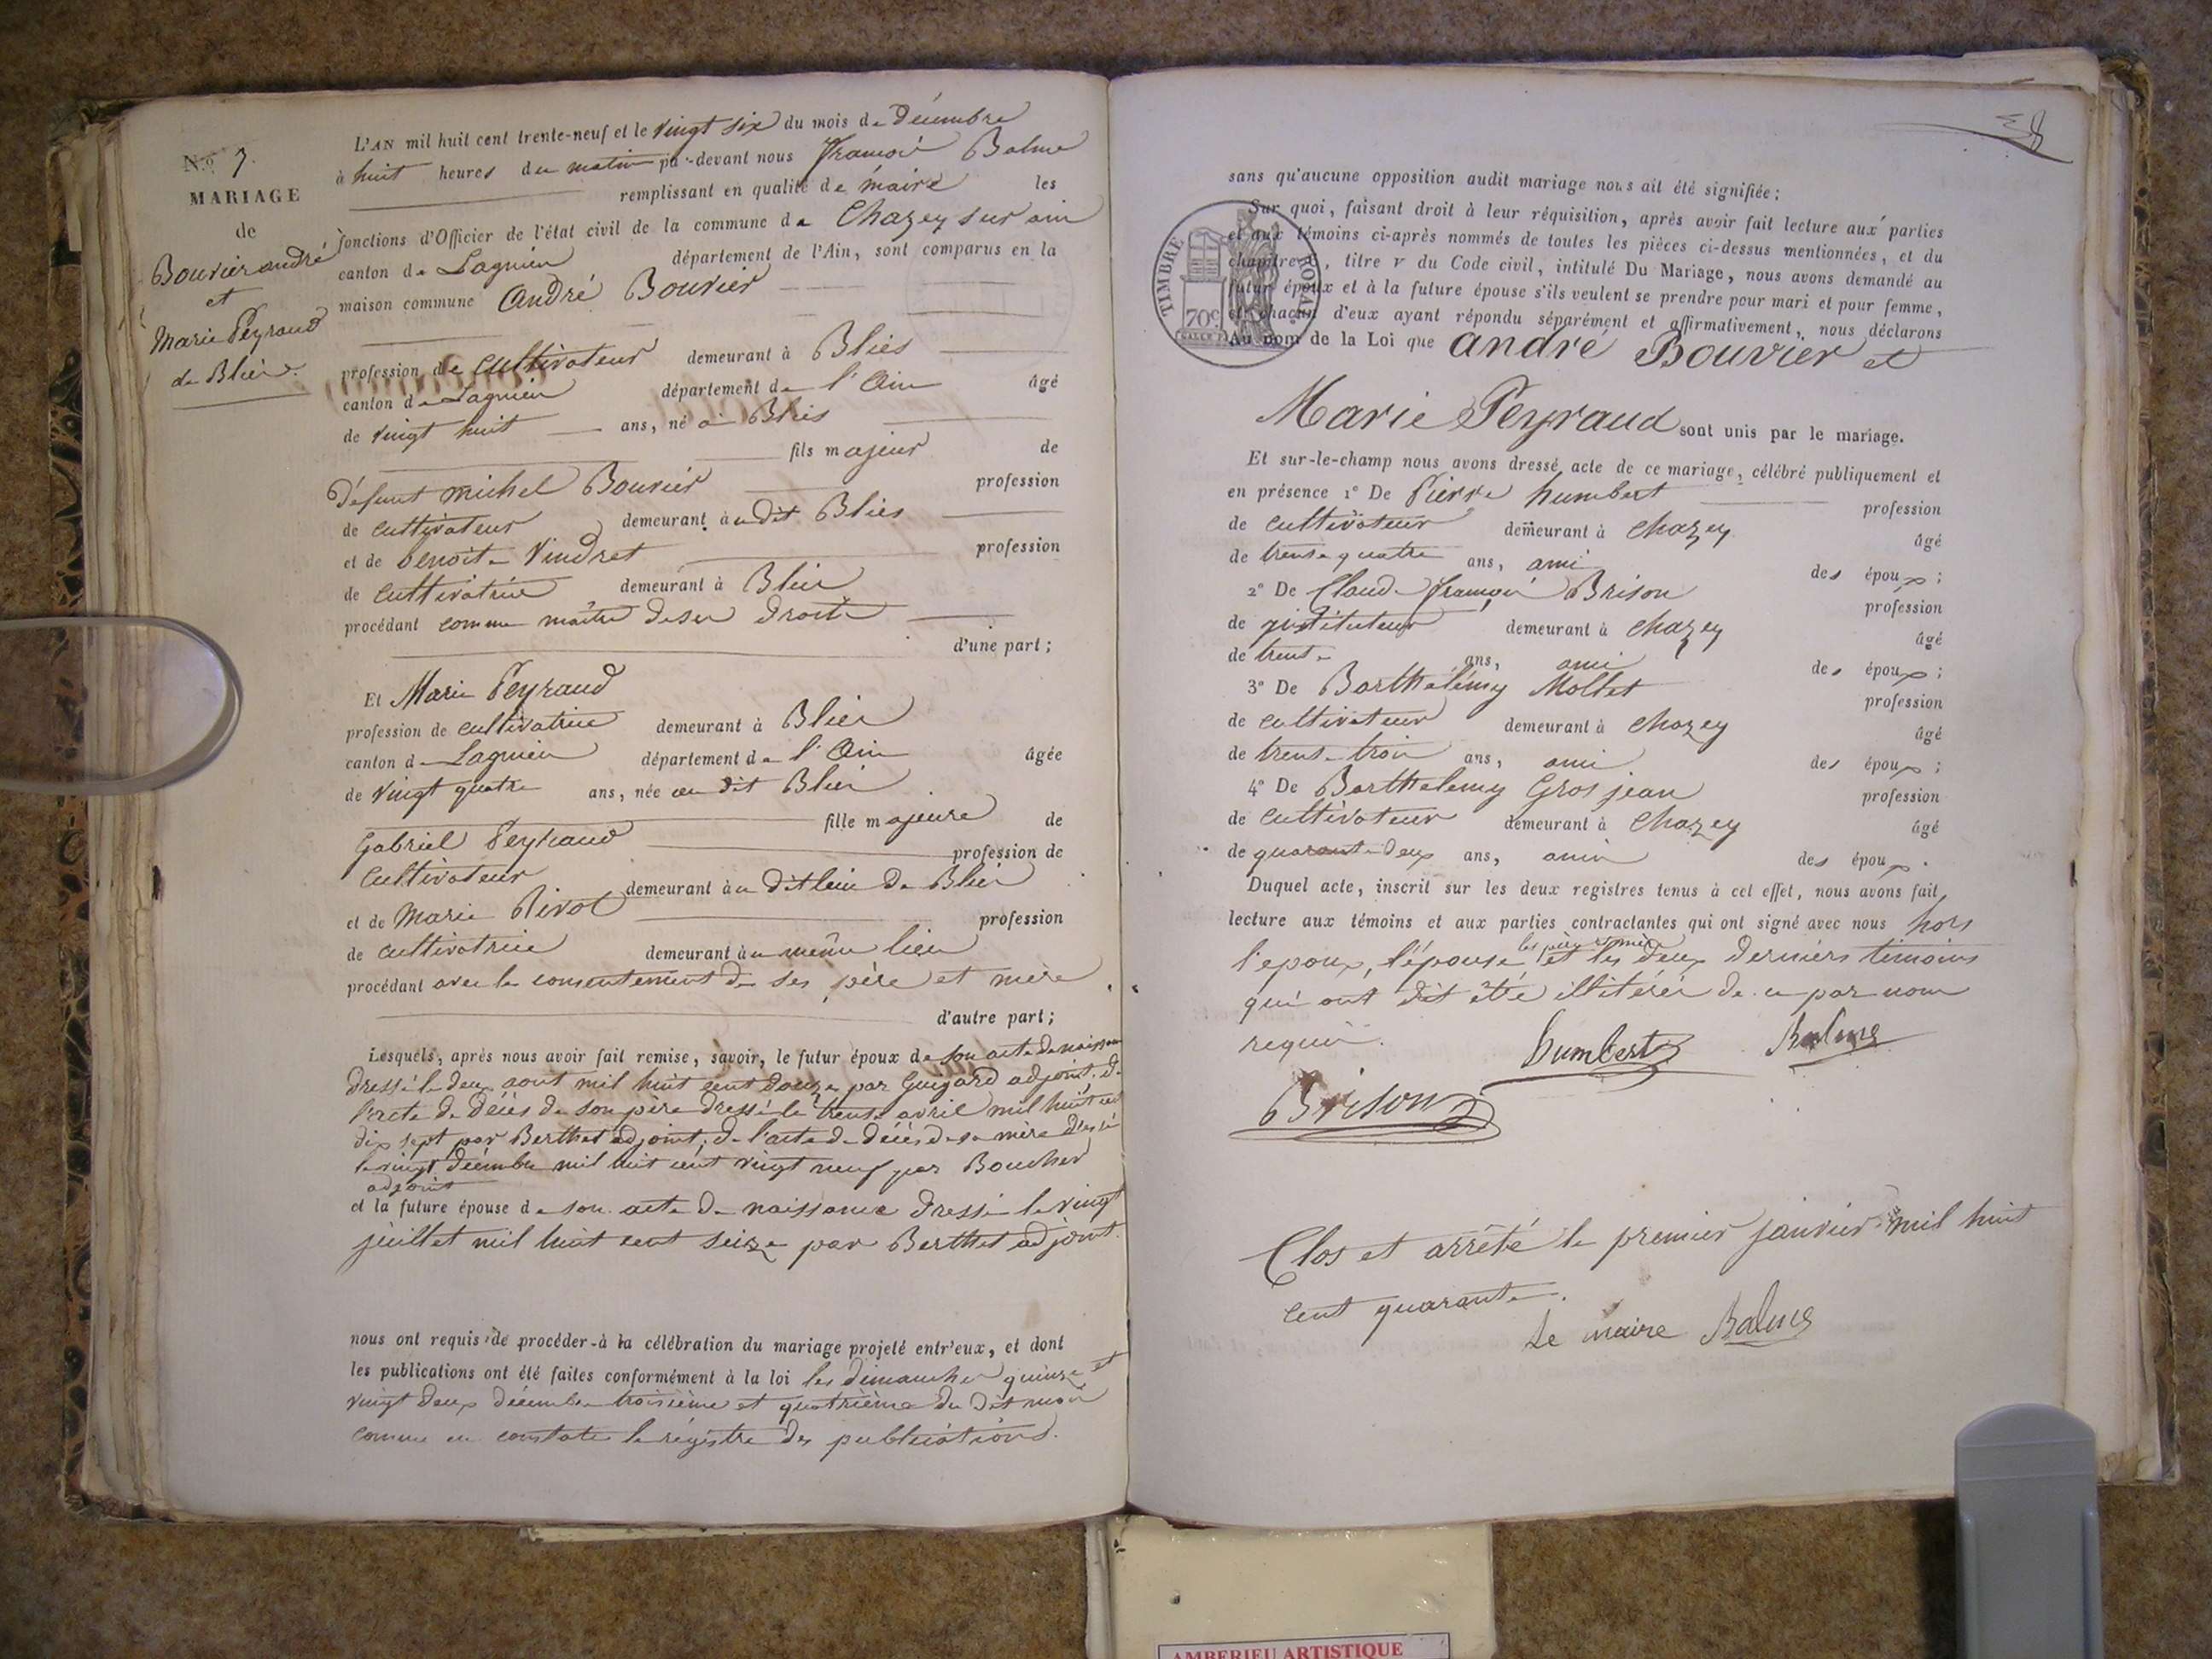 N.º 7.
MARIAGE
de
Bouvier andré
et
Marie Peyraud
de Blies.
L'AN mil huit cent trente-neuf et le vingt six du mois de décembre
à huit heures du matin par-devant nous françois Balme
remplissant en qualité de maire les
fonctions d'Officier de l'état civil de la commune de Chazey sur ain
canton de Lagnieu département de l'Ain, sont comparus en la
maison commune André Bouvier
profession de cultivateur demeurant à Blies
canton de Lagnieu département de l'Ain âgé
de vingt huit ans, né à Blies
fils majeur de
Défunt michel Bouvier profession
de cultivateur demeurant au dit Blies
et de benoite Vindret profession
de cultivatrice demeurant à Blies
procédant comme maître de ses droits
d'une part;
Et Marie Peyraud
profession de cultivatrice demeurant à Blies
canton de Lagnieu département de l'Ain âgée
de vingt quatre ans, née au dit Blies
fille majeure de
Gabriel Peyraud profession de
cultivateur demeurant au dit lieu de Blies
et de Marie Pivot profession
de cultivatrice demeurant au même lieu
procédant avec le consentement de ses père et mère
d'autre part;
Lesquels, après nous avoir fait remise, savoir, le futur époux de son acte de naissance
dressé le deux aout mil huit cent douze par Guigard adjoint, de
l'acte de décès de son père dressé le trente avril mil huit cent
dix sept par Berthet adjoint; de l'acte de décès de sa mère dressé
le vingt décembre mil huit cent vingt neuf par Boucher
adjoint
et la future épouse de son acte de naissance dressé le vingt
juillet mil huit cent seize par Berthet adjoint.
nous ont requis de procéder à la célébration du mariage projeté entr'eux, et dont
les publications ont été faites conformément à la loi les dimanches quinze et
vingt deux décembre troisième et quatrième du dit mois
comme en constate le régistre des publications.
8
sans qu'aucune opposition audit mariage nous ait été signifiée;
Sur quoi, faisant droit à leur réquisition, après avoir fait lecture aux parties
et aux témoins ci-après nommés de toutes les pièces ci-dessus mentionnées, et du
chapitre, titre V du Code civil, intitulé Du Mariage, nous avons demandé au
futur époux et à la future épouse s'ils veulent se prendre pour mari et pour femme,
et chacun d'eux ayant répondu séparément et affirmativement, nous déclarons
Au nom de la Loi que André Bouvier et
TIMBRE ROYAL
70c
Marie Peyraud sont unis par le mariage.
Et sur-le-champ nous avons dressé acte de ce mariage, célébré publiquement et
en présence 1º De Pierre humbert profession
de cultivateur demeurant à Chazey âgé
de trente quatre ans, ami des époux;
2º De Claude françois Brison profession
de instituteur demeurant à Chazey âgé
de trente ans, ami des époux;
3º De Barthélemy Mollet profession
de cultivateur demeurant à Chazey âgé
de trente trois ans, ami des époux;
4º De Barthelemy Gros jean profession
de cultivateur demeurant à Chazey âgé
de quarante-deux ans, ami des époux.
Duquel acte, inscrit sur les deux registres tenus à cet effet, nous avons fait
lecture aux témoins et aux parties contractantes qui ont signé avec nous hors
les père et mère
l'epoux, l'épouse et les deux derniers témoins
qui ont dit être illitérés de ce par nous
requis.
humbert Balme
Brison
Clos et arrêté le premier janvier mil huit
cent quarante.
Le maire Balme
AMBERIEU ARTISTIQUE